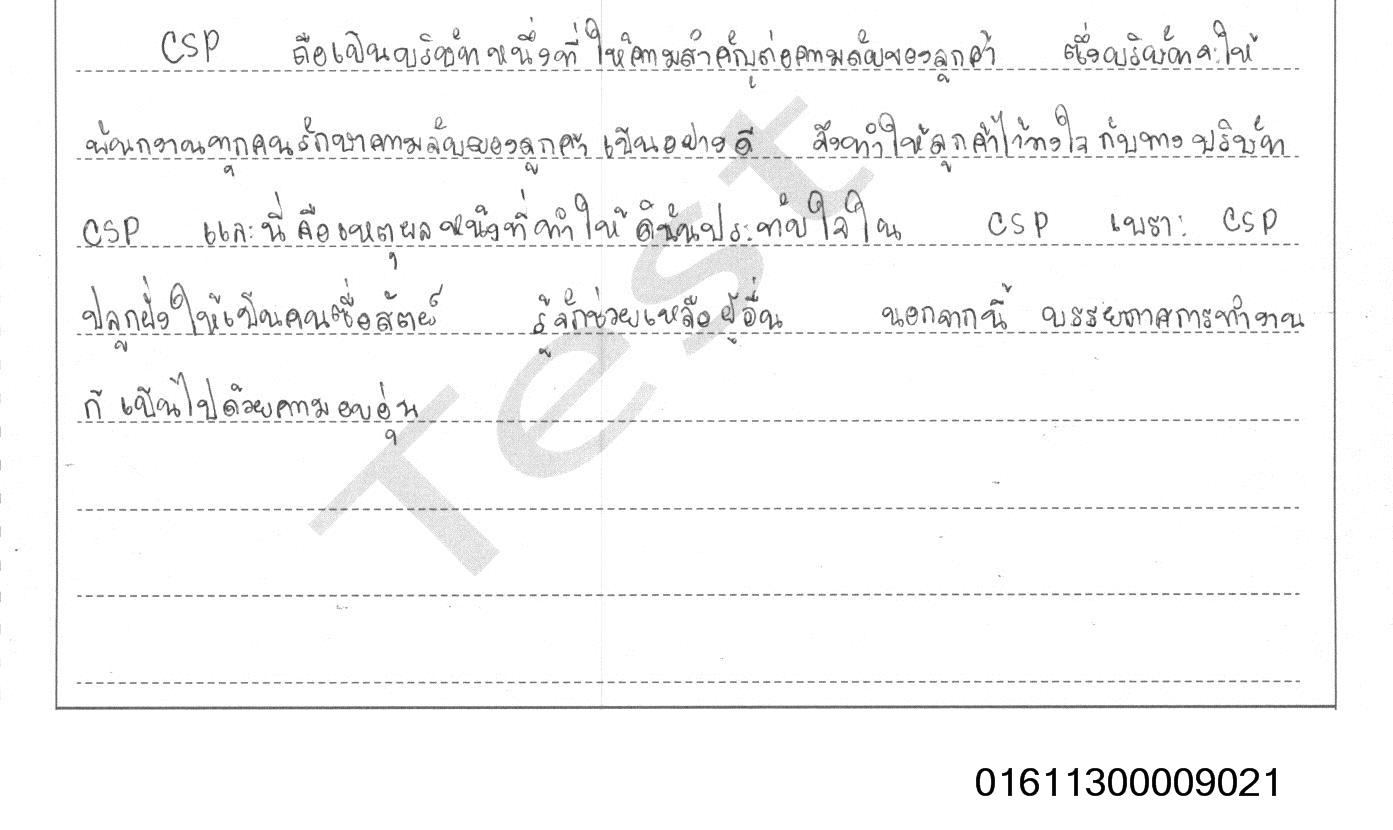 CSP ถือเป็นบริษัทหนึ่งที่ให้ความสำคัญต่อความลับของลูกค้า ซึ่งบริษัทจะให้
พนักงานทุกคนรักษาความลับของลูกค้าเป็นอย่างดี จึงทำให้ลูกค้าไว้วางใจกับทางบริษัท
CSP และนี่คือเหตุผลหนึ่งที่ทำให้ดิฉันประทับใจใน CSP เพราะ CSP
ปลูกฝังให้เป็นคนซื่อสัตย์ รู้จักช่วยเหลือผู้อื่น นอกจากนี้ บรรยกาศการทำงาน
ก็เป็นไปด้วยความอบอุ่น
Test
01611300009021